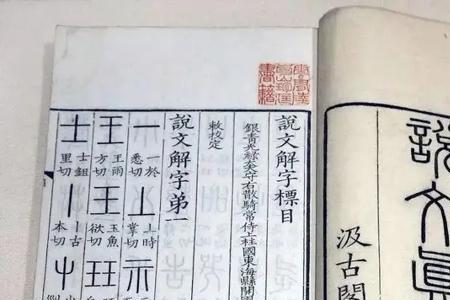 說文真
汲古閣
說文解字標目
銀青光祿大夫守右散騎常侍上柱國東海縣開國
敕校定
說文解字第一
一 一於悉切 丄 上時掌切 示
王 王雨方切 王 玉魚欲切 玨
士 士鉏里切 丨 丨古本切 屮